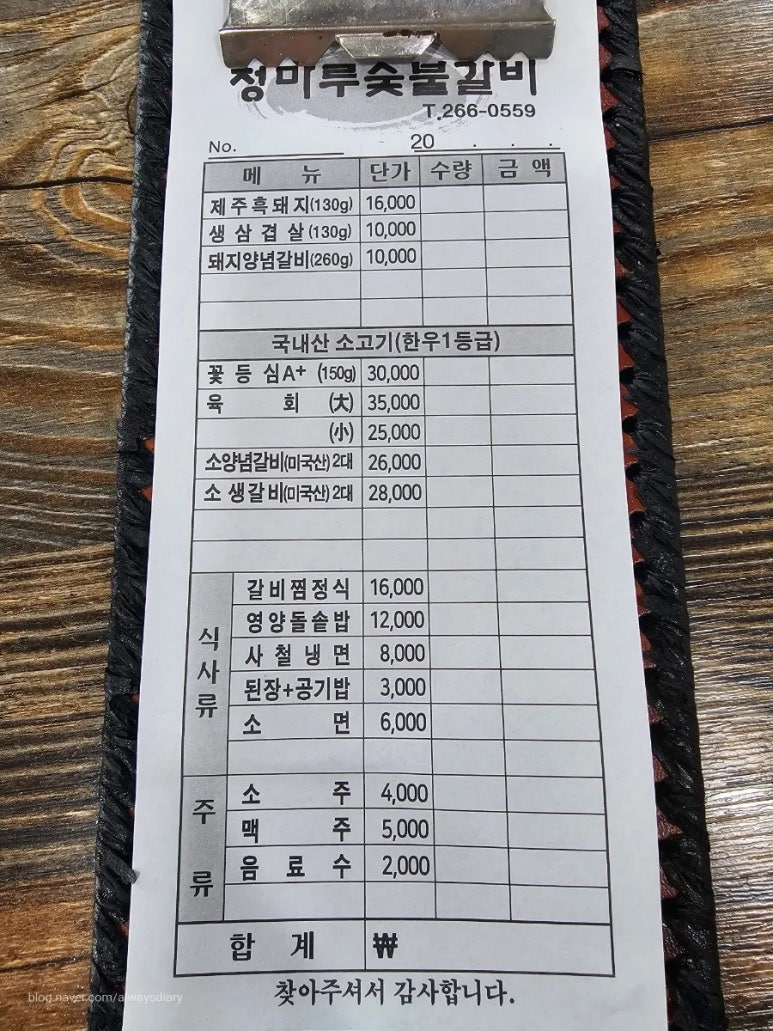 청마루숯불갈비
T.266-0559
No. 20 . . .
메 뉴 단가 수량 금 액
제주흑돼지(130g) 16,000
생 삼 겹 살 (130g) 10,000
돼지양념갈비(260g) 10,000
국내산 소고기(한우1등급)
꽃 등 심A+ (150g) 30,000
육 회 (大) 35,000
(小) 25,000
소양념갈비(미국산)2대 26,000
소 생갈비(미국산)2대 28,000
식사류
갈비찜정식 16,000
영양돌솥밥 12,000
사 철 냉 면 8,000
된장+공기밥 3,000
소 면 6,000
주류
소 주 4,000
맥 주 5,000
음 료 수 2,000
합 계 ₩
찾아주셔서 감사합니다.
blog.naver.com/alwaysdiary